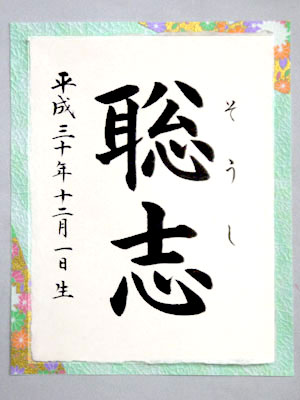 そうし
聡志
平成三十年十二月一日生